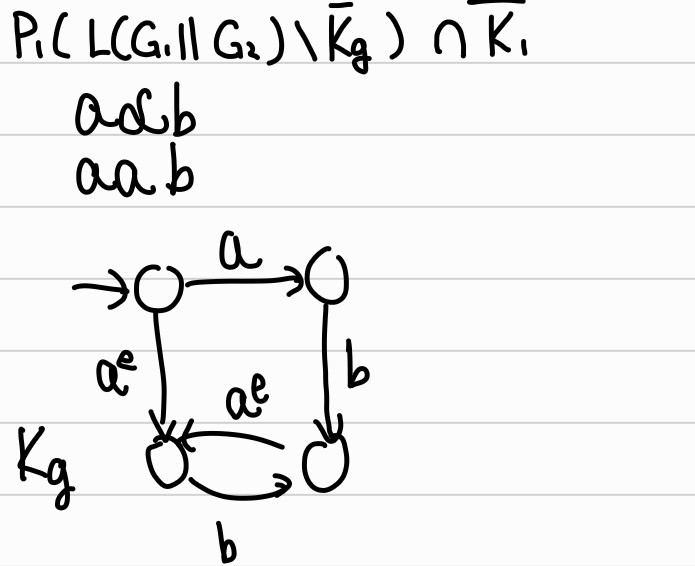 P₁( L(G₁||G₂) \ K̅g ) ∩ K̅₁
aαb
aab
a
aᵉ
aᵉ
b
Kg
b